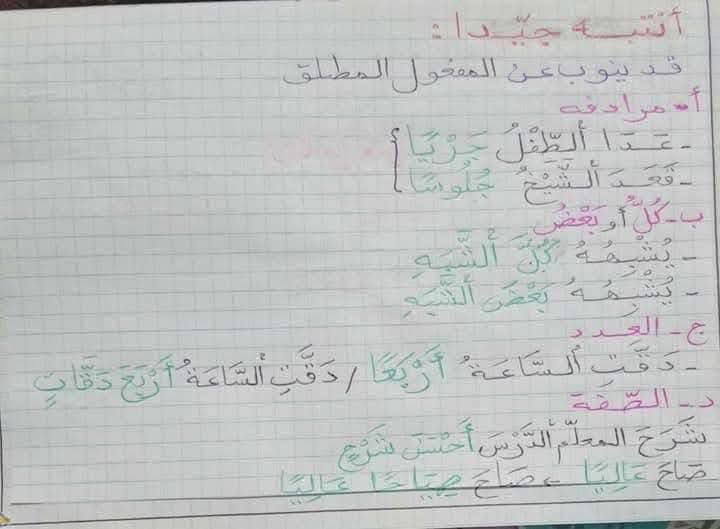 أنتبه جيّدا:
قد ينوب عن المفعول المطلق
أ- مرادفه
- عَدَا ألطِّفْلُ جَرْيًا
- قَعَدَ ألشَّيْخُ جُلُوسًا
ب- كُلُّ أو بَعْضُ
- يُشْبِهُهُ كُلَّ ألشَّبَهِ
- يُشْبِهُهُ بَعْضَ ألشَّبَهِ
ج- العدد
- دَقَّتِ ألسَّاعَةُ أَرْبَعًا / دَقَّتِ ألسَّاعَةُ أَرْبَعَ دَقَّاتٍ
د- الصّفة
شَرَحَ المعلّم ألدَّرْسَ أَحْسَنَ شَرْحٍ
صَاحَ عَالِيًا - صَاحَ صِيَاحًا عَالِيًا